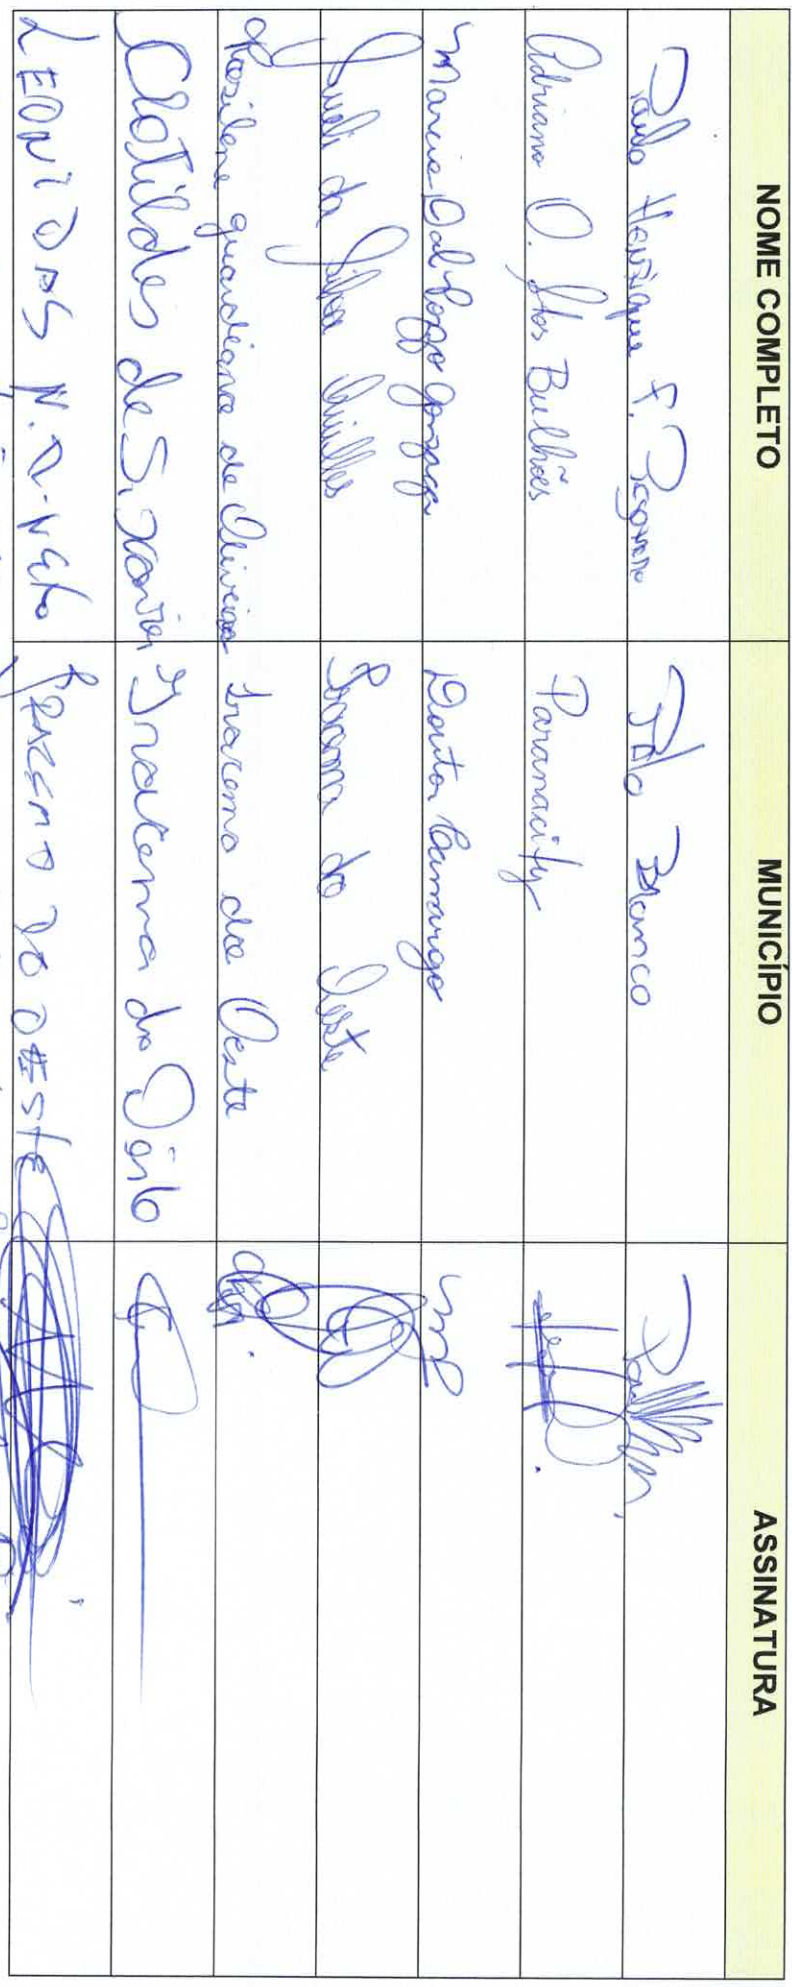 NOME COMPLETO MUNICÍPIO ASSINATURA
Paulo Henrique F. Pato Branco
Adriano O. Stos Bulhões Paranacity
Marcia Dal Pozzo Doutor Camargo
Sueli da Silva Iracema do Oeste
Rosilene de Oliveira Iracema do Oeste
Clotildes de S. Xavier Iracema do Oeste
LEONIDAS N. Neto IRACEMA DO OESTE